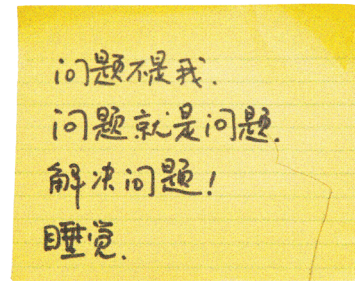 问题不是我.
问题就是问题.
解决问题!
睡觉.